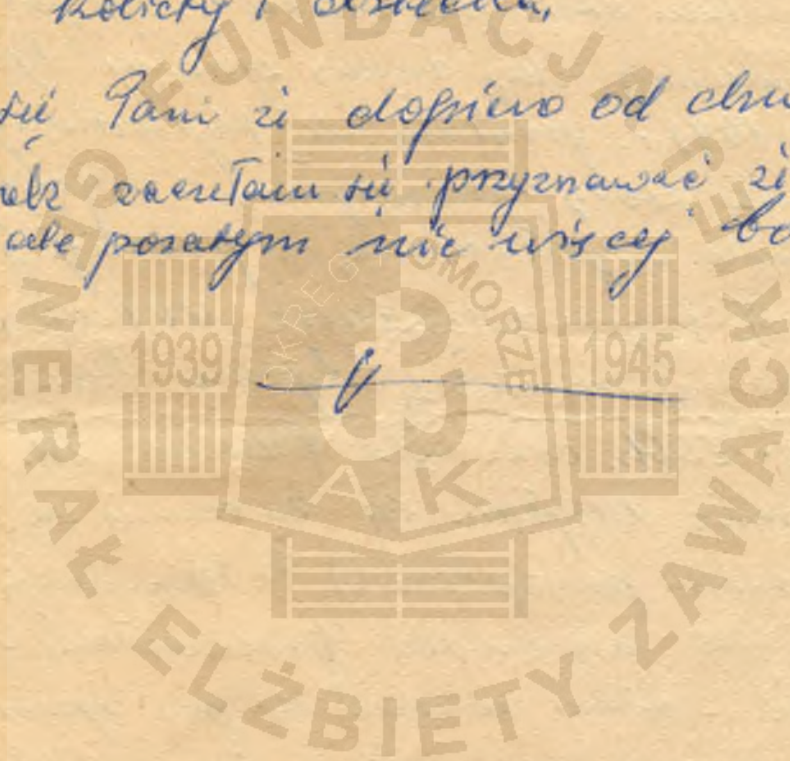 i
się Pani że dopiero od
zaczełam się przyznawać że
ale pozatym nic więcej bo
FUNDACJA
GENERAŁ ELŻBIETY ZAWACKIE
OKRĘG POMORZE
1939 1945
A K